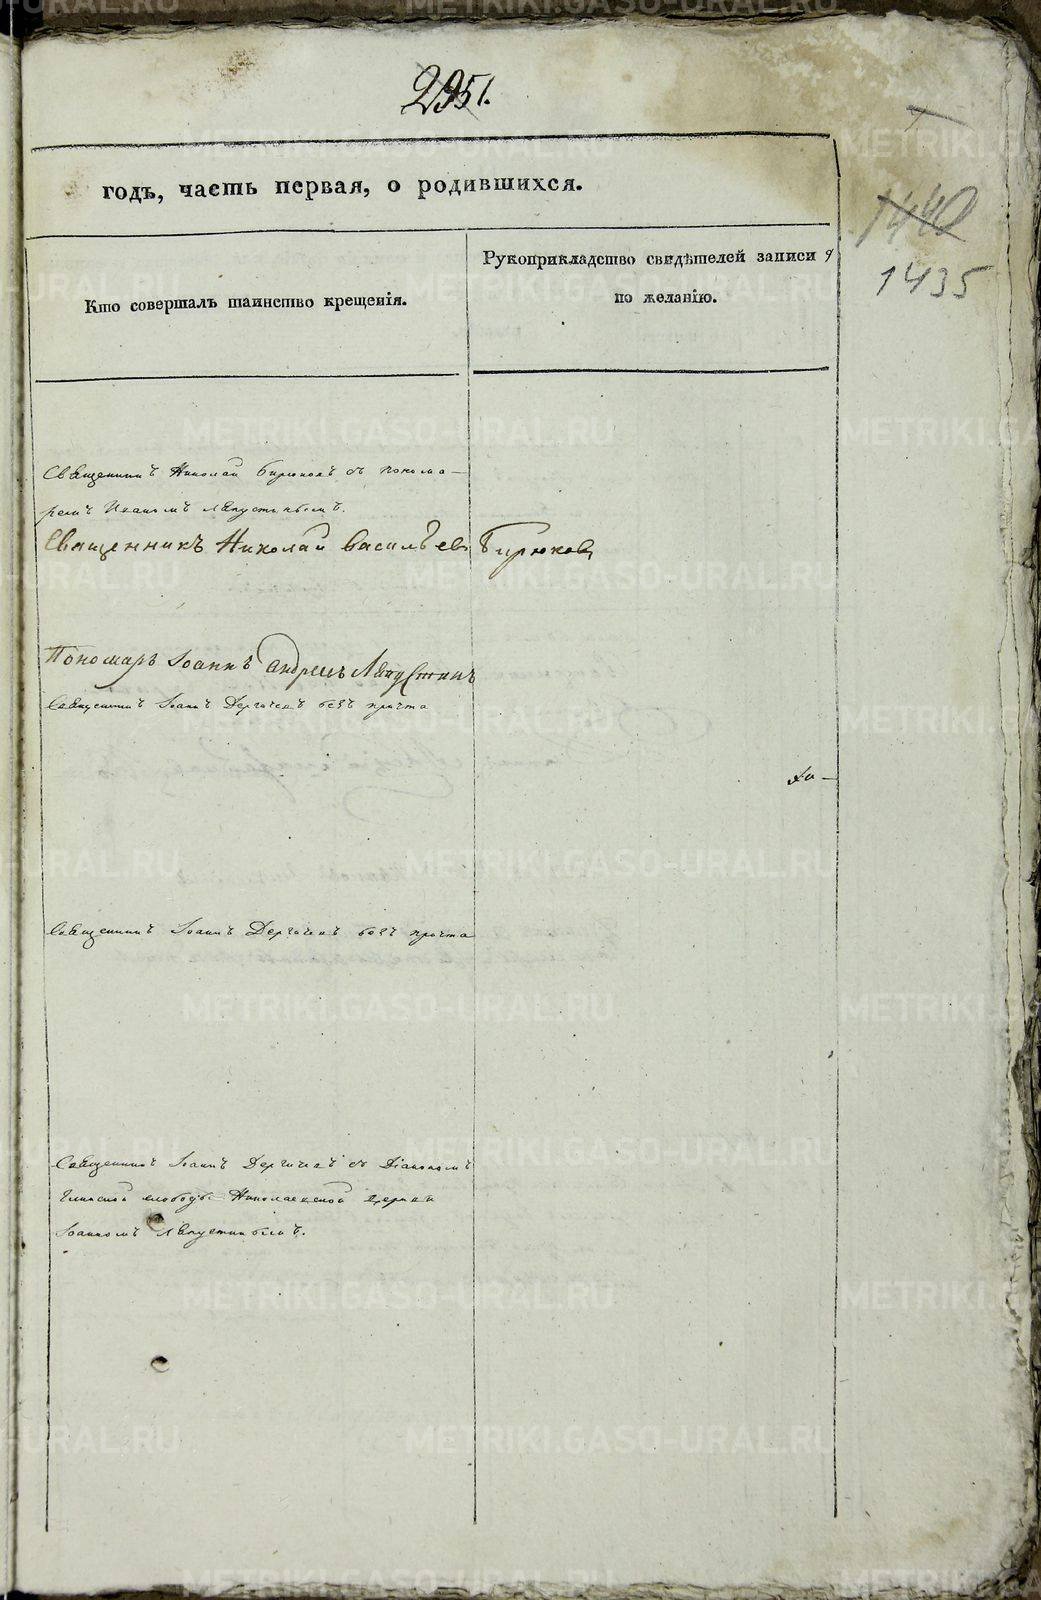 2951.
годъ, часть первая, о родившихся.
1440
1435
Кто совершалъ таинство крещенія.
Рукоприкладство свидѣтелей записи
по желанію.
Священникъ Николай Бирюковъ съ понома-
ремъ Иваномъ Ляпустинымъ.
Священникъ Николай Васильевъ Бирюковъ
Пономарь Іоаннъ Андреевъ Ляпустинъ
Священникъ Іоаннъ Дергачевъ безъ причта
Священникъ Іоаннъ Дергачевъ безъ причта
Священникъ Іоаннъ Дергачевъ съ Діакономъ
слободы Николаевской церкви
Іоанномъ Ляпустинымъ.
METRIKI.GASO-URAL.RU